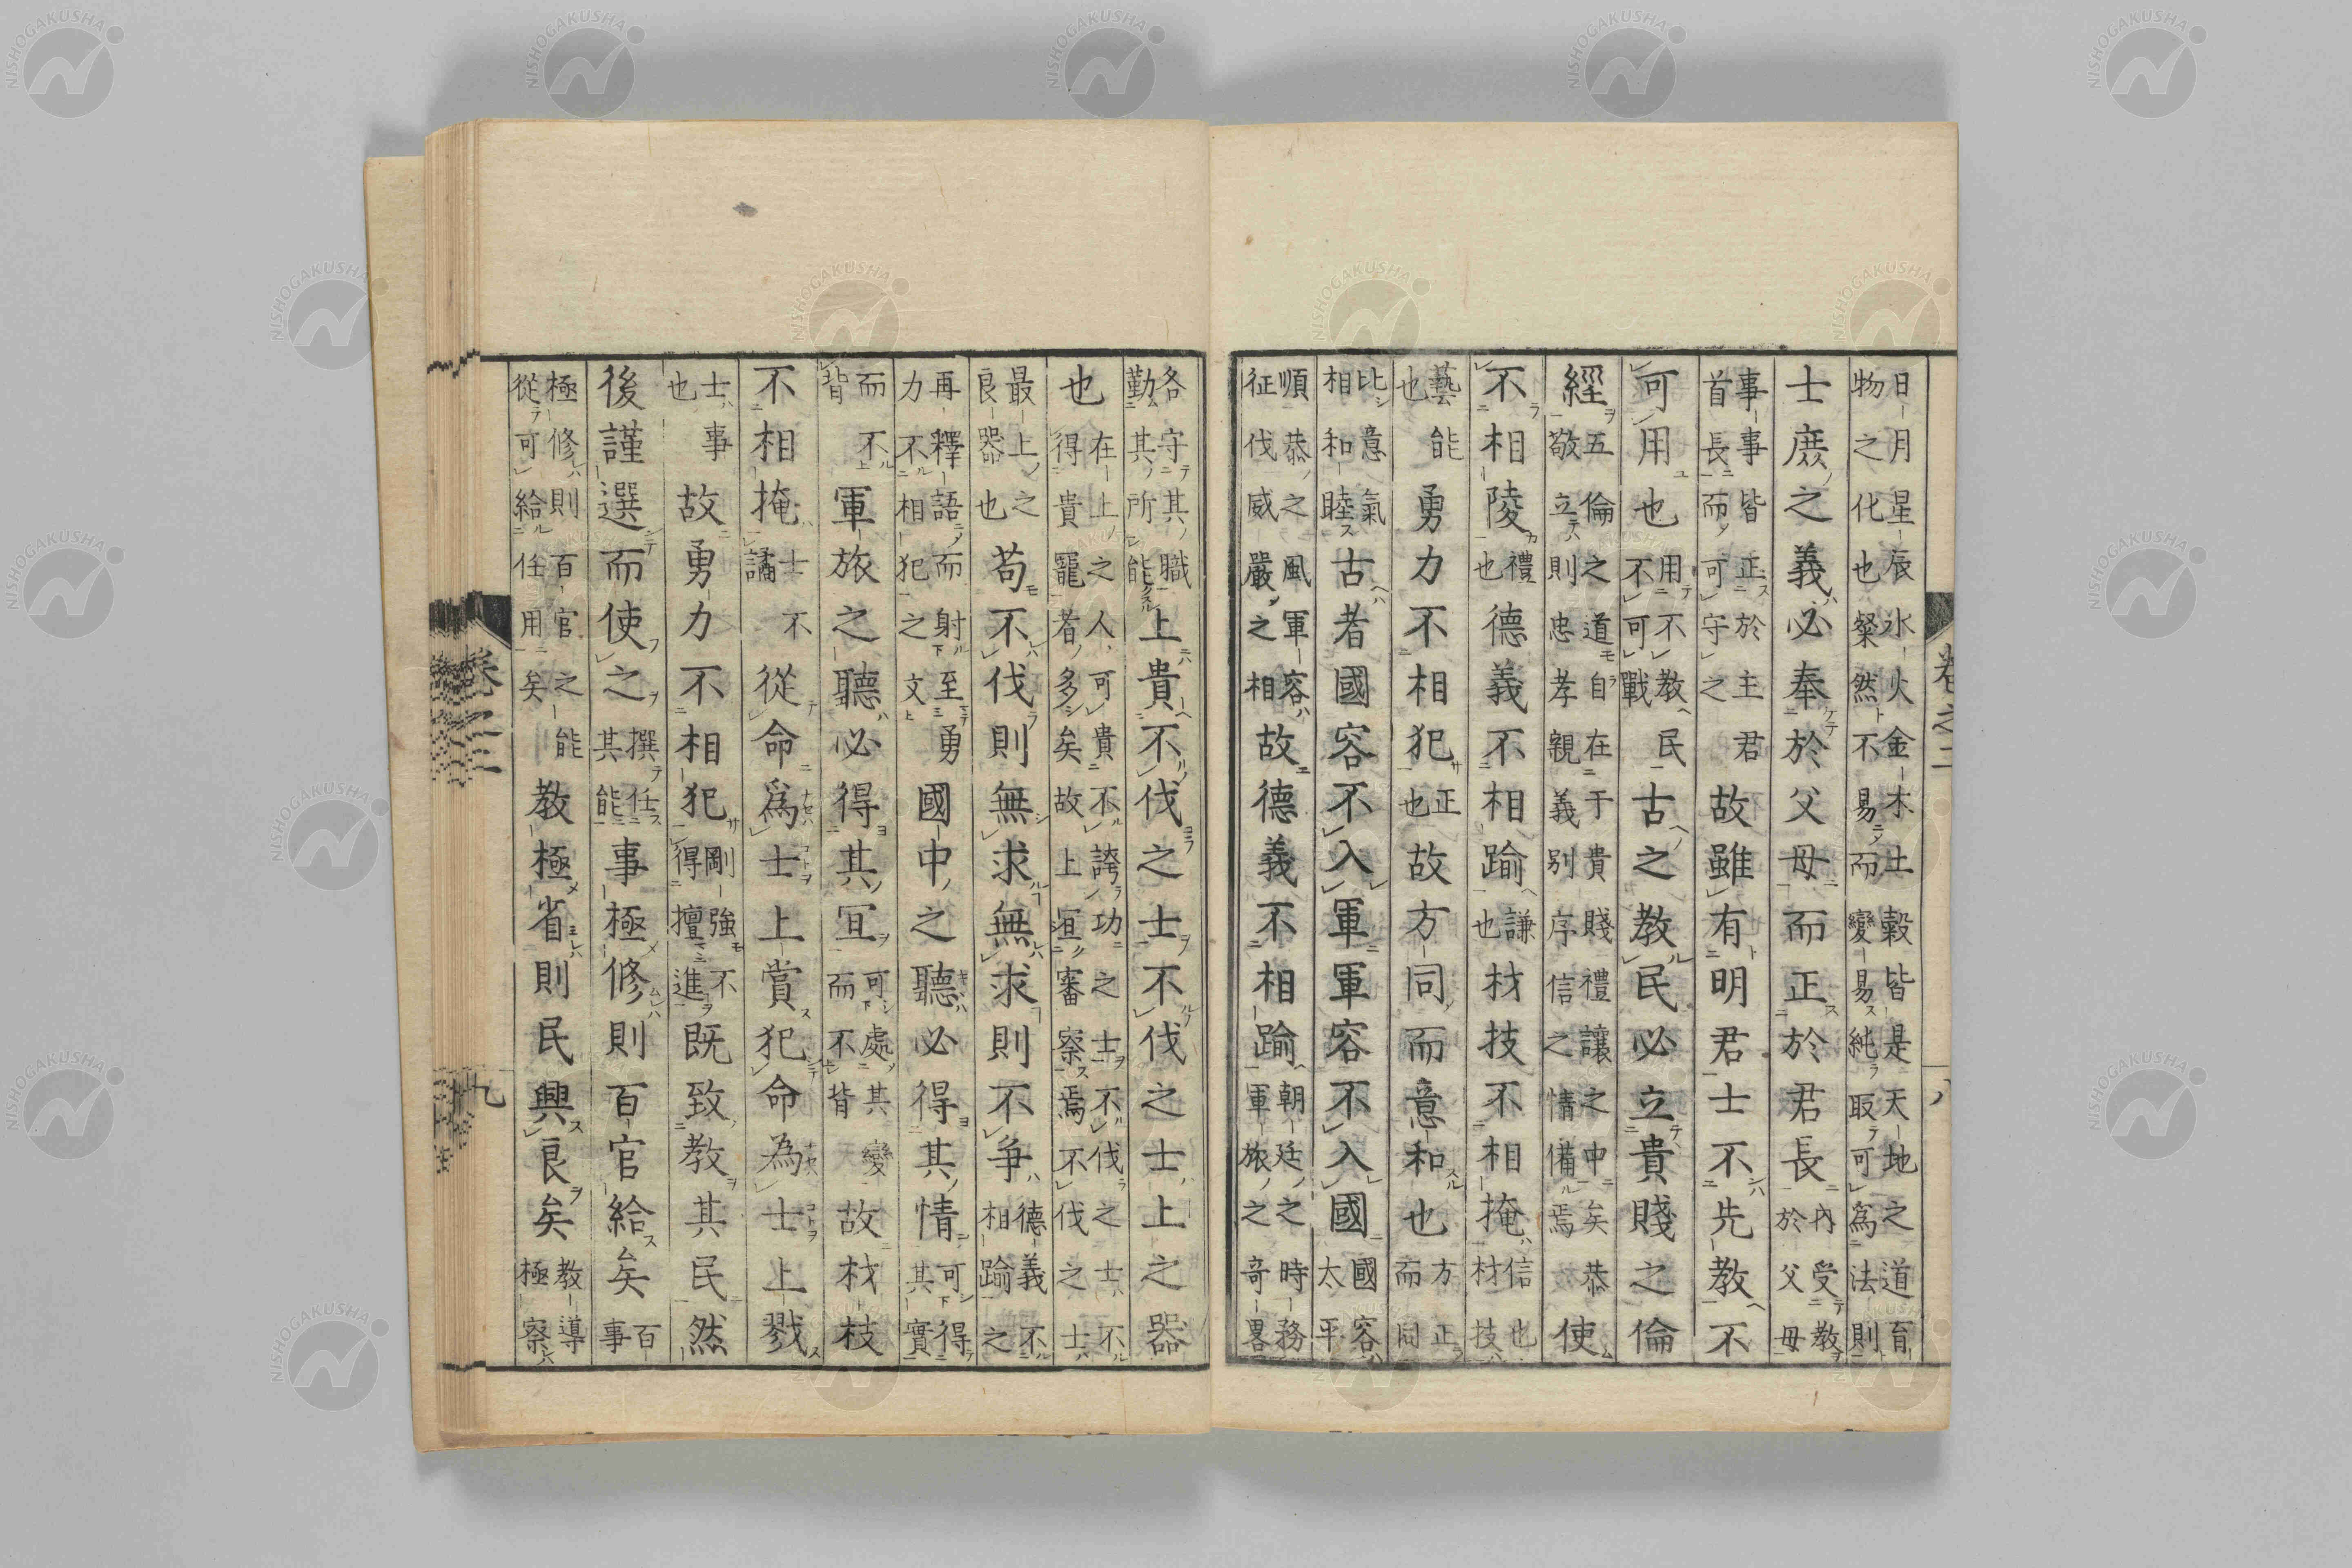 卷之二 八
日月星辰水火金木土穀皆是天地之道育
物之化也粲然不易而變易純取可爲法則
士庶之義必奉於父母而正於君長內受教於父母
事事皆正於主君首長而可守之故雖有明君士不先教不
可用也用不教民不可戰古之教民必立貴賤之倫
經五倫之道自在于貴賤禮讓之中矣恭敬立則忠孝親義別序信之情備焉使
不相陵禮也德義不相踰謙也材技不相掩信也材技
藝能也勇力不相犯正也故方同而意和也方正而同
比意氣相和睦古者國容不入軍軍容不入國國容太平
順恭之風軍容征伐威嚴之相故德義不相踰朝廷之時務軍旅之奇畧
各守其職勤其所能上貴不伐之士不伐之士上之器
也在上之人可貴不誇功之士不伐之士不得貴寵者多矣故上宜審察焉不伐之士
最上之良器也苟不伐則無求無求則不爭德義不相踰之
再釋語而射至勇力不相犯之文國中之聽必得其情可得其實
而不背軍旅之聽必得其宜可處其變而不背故材技
不相掩士不譎從命爲士上賞犯命為士上戮
士事也故勇力不相犯剛強不得擅進既致教其民然
後謹選而使之撰任其能事極修則百官給矣百事
極修則百官之能從可給任用矣教極省則民興良矣教導極察
九